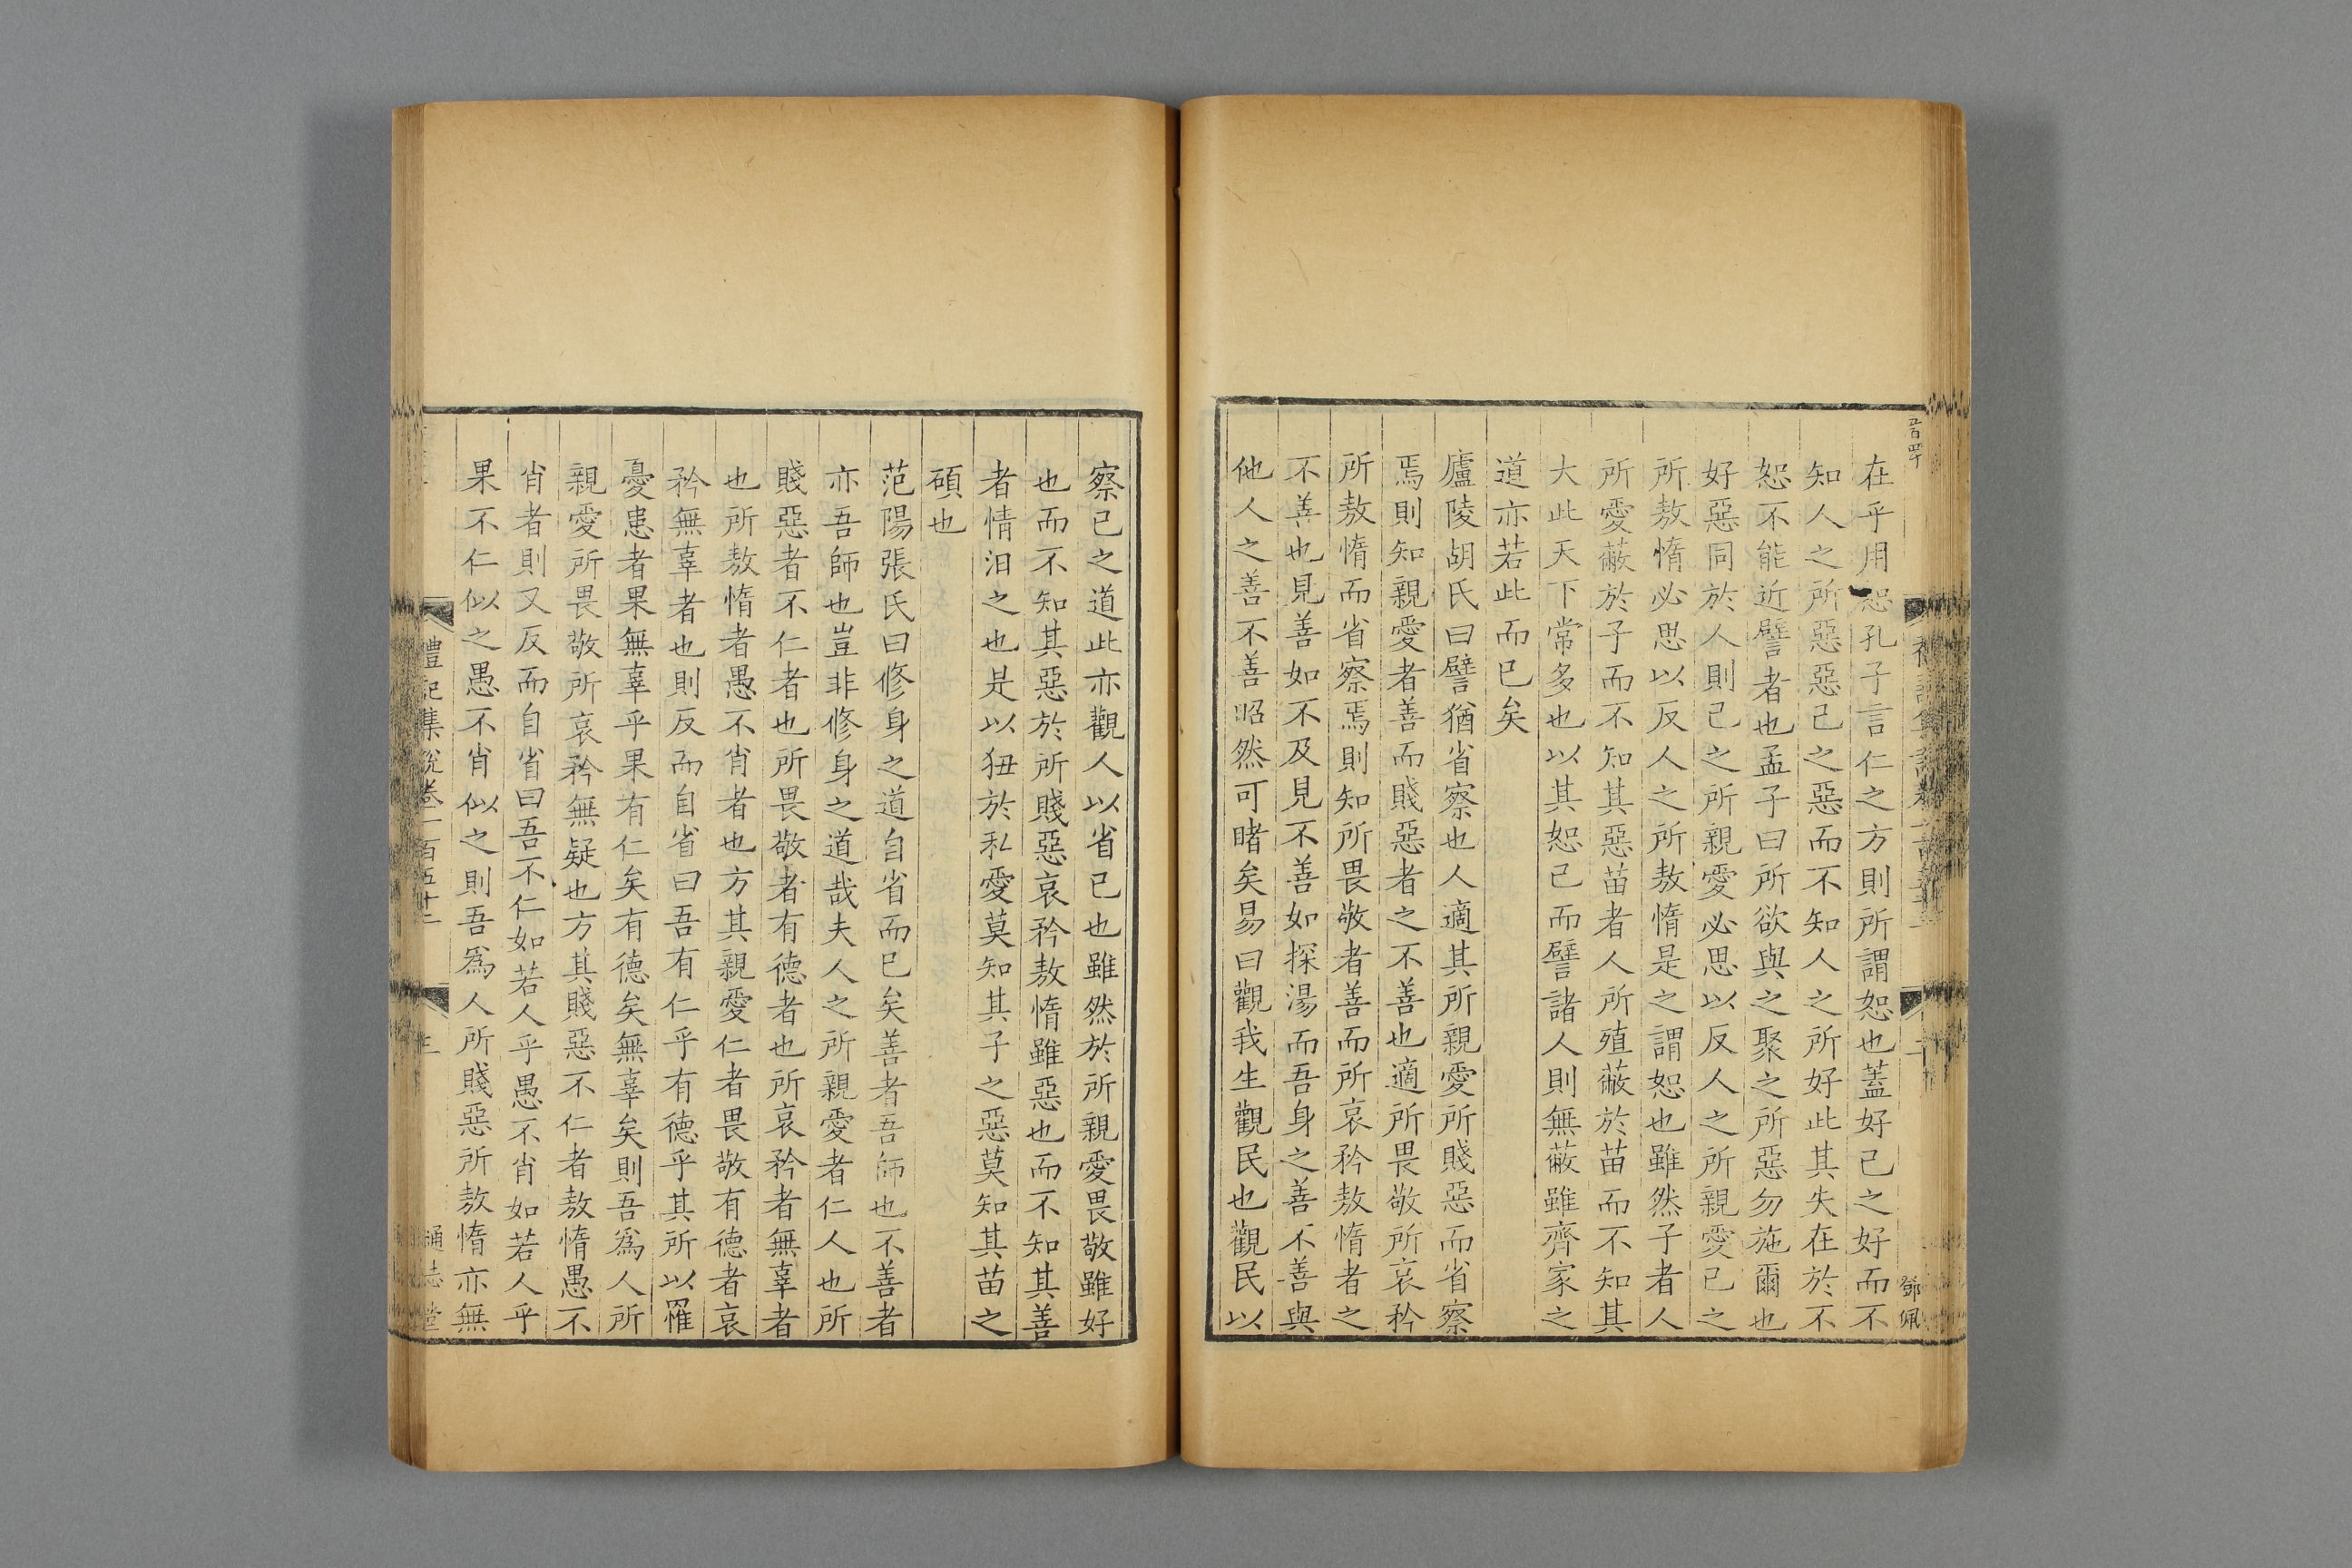 在乎用恕孔子言仁之方則所謂恕也蓋好己之好而不
知人之所惡惡己之惡而不知人之所好此其失在於不
恕不能近譬者也孟子曰所欲與之聚之所惡勿施爾也
好惡同於人則己之所親愛必思以反人之所親愛己之
所敖惰必思以反人之所敖惰是之謂恕也雖然子者人
所愛蔽於子而不知其惡苗者人所殖蔽於苗而不知其
大此天下常多也以其恕己而譬諸人則無蔽雖齊家之
道亦若此而已矣
廬陵胡氏曰譬猶省察也人適其所親愛所賤惡而省察
焉則知親愛者善而賤惡者之不善也適所畏敬所哀矜
所敖惰而省察焉則知所畏敬者善而所哀矜敖惰者之
不善也見善如不及見不善如探湯而吾身之善不善與
他人之善不善昭然可睹矣易曰觀我生觀民也觀民以
鄧佩
察己之道此亦觀人以省己也雖然於所親愛畏敬雖好
也而不知其惡於所賤惡哀矜敖惰雖惡也而不知其善
者情汩之也是以狃於私愛莫知其子之惡莫知其苗之
碩也
范陽張氏曰修身之道自省而已矣善者吾師也不善者
亦吾師也豈非修身之道哉夫人之所親愛者仁人也所
賤惡者不仁者也所畏敬者有德者也所哀矜者無辜者
也所敖惰者愚不肖者也方其親愛仁者畏敬有德者哀
矜無辜者也則反而自省曰吾有仁乎有德乎其所以罹
憂患者果無辜乎果有仁矣有德矣無辜矣則吾爲人所
親愛所畏敬所哀矜無疑也方其賤惡不仁者敖惰愚不
肖者則又反而自省曰吾不仁如若人乎愚不肖如若人乎
果不仁似之愚不肖似之則吾爲人所賤惡所敖惰亦無
禮記集說卷一百五十
通志堂